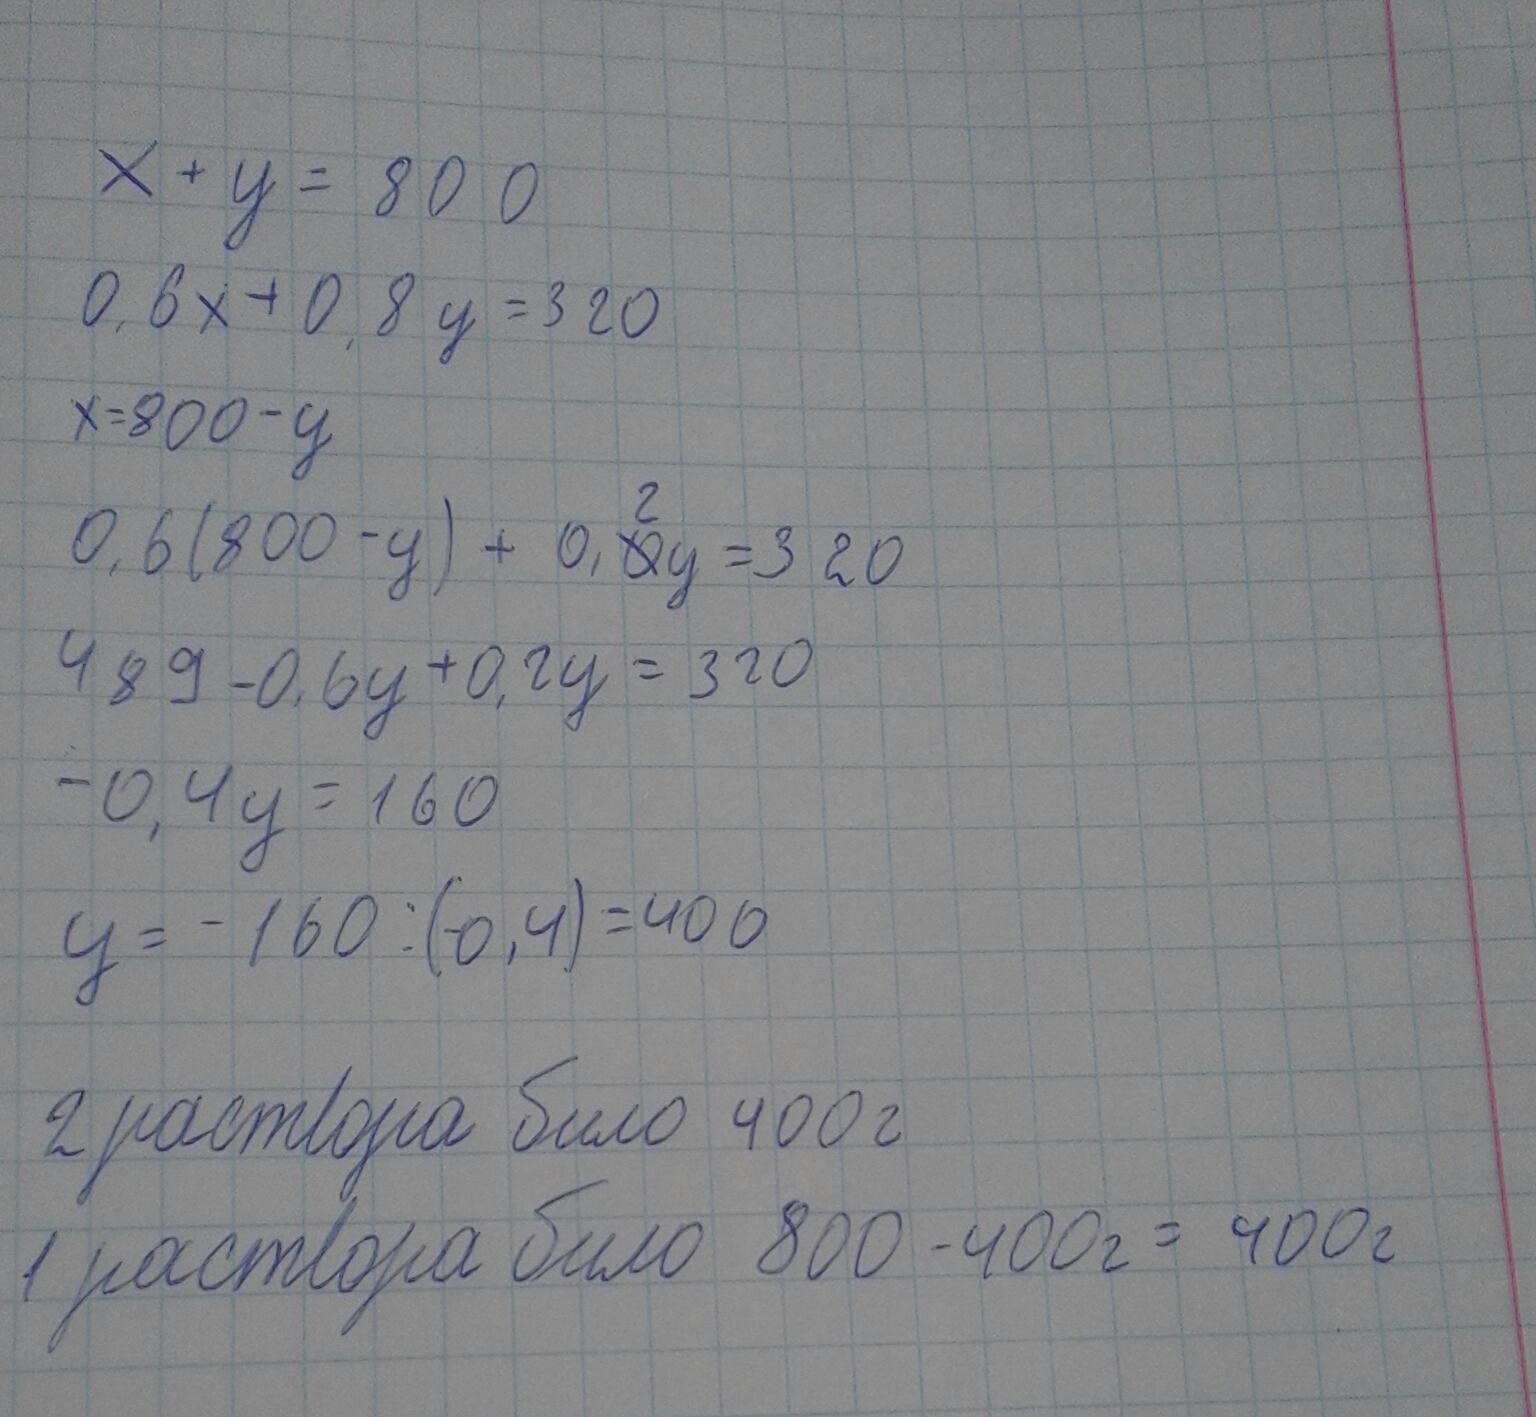 x + y = 800
0,6x + 0,8y = 320
x = 800 - y
2
0,6(800 - y) + 0, y = 320
489 - 0,6y + 0,2y = 320
- 0,4y = 160
y = - 160 : (-0,4) = 400
2 раствора било 400г
1 раствора било 800 - 400г = 400г